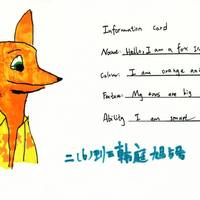 Information card
Name: Hello, I am a fox
Colour: I am orange
Feature: My ears are big
Ability: I am smart
二(6)班 韩庭旭